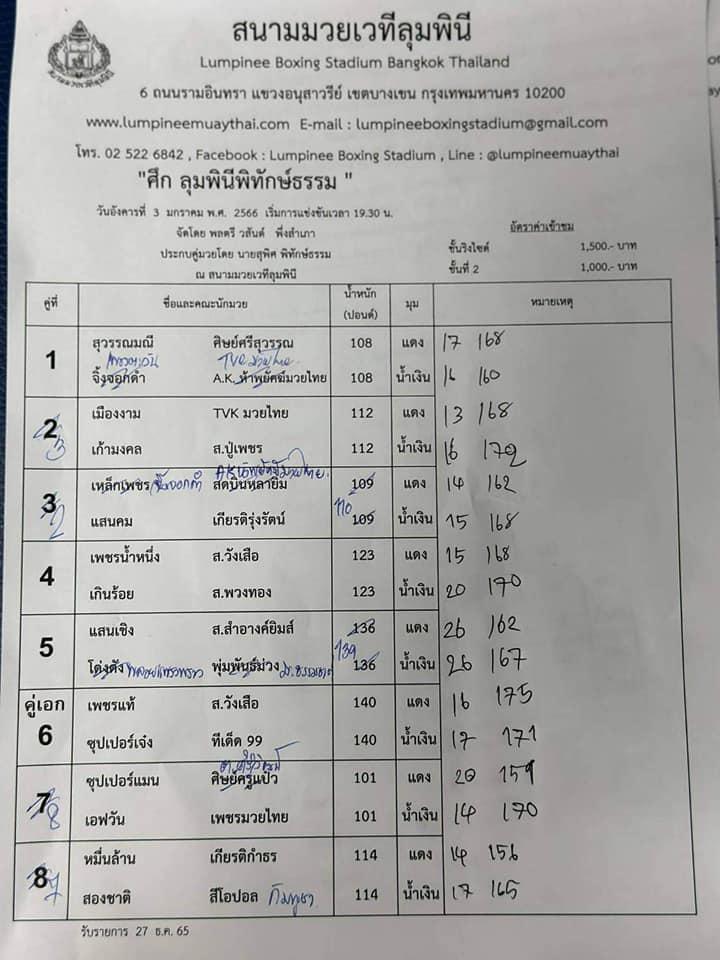 สนามมวยเวทีลุมพินี
Lumpinee Boxing Stadium Bangkok Thailand
6 ถนนรามอินทรา แขวงอนุสาวรีย์ เขตบางเขน กรุงเทพมหานคร 10200
www.lumpineemuaythai.com E-mail : lumpineeboxingstadium@gmail.com
โทร. 02 522 6842 , Facebook : Lumpinee Boxing Stadium , Line : @lumpineemuaythai
"ศึก ลุมพินีพิทักษ์ธรรม "
วันอังคารที่ 3 มกราคม พ.ศ. 2566 เริ่มการแข่งขันเวลา 19.30 น.
จัดโดย พลตรี วสันต์ พึ่งสำเภา อัตราค่าเข้าชม
ประกบคู่มวยโดย นายสุพิศ พิทักษ์ธรรม ชั้นริงไซด์ 1,500.- บาท
ณ สนามมวยเวทีลุมพินี ชั้นที่ 2 1,000.- บาท
คู่ที่ ชื่อและคณะนักมวย น้ำหนัก (ปอนด์) มุม หมายเหตุ
1 สุวรรณมณี ศิษย์ศรีสุวรรณ 108 แดง 17 168
TVK มวยไทย
จิ้งจอกดำ A.K. ห้าพยัคฆ์มวยไทย 108 น้ำเงิน 16 160
2 3 เมืองงาม TVK มวยไทย 112 แดง 13 168
เก้ามงคล ส.ปู่เพชร 112 น้ำเงิน 16 172
3 2 เหล็กเพชร จิ้งจอกดำ สดบินหลายิ้ม 109 แดง 14 162
110
แสนคม เกียรติรุ่งรัตน์ 109 น้ำเงิน 15 168
4 เพชรน้ำหนึ่ง ส.วังเสือ 123 แดง 15 168
เกินร้อย ส.พวงทอง 123 น้ำเงิน 20 170
5 แสนเชิง ส.สำอางค์ยิมส์ 136 แดง 26 162
139
โด่งดัง พุ่มพันธ์ม่วง 136 น้ำเงิน 26 167
คู่เอก 6 เพชรแท้ ส.วังเสือ 140 แดง 16 175
ซุปเปอร์เจ๋ง ทีเด็ด 99 140 น้ำเงิน 17 171
7 8 ซุปเปอร์แมน ศิษย์ครูแป๋ว 101 แดง 20 159
เอฟวัน เพชรมวยไทย 101 น้ำเงิน 14 170
8 7 หมื่นล้าน เกียรติกำธร 114 แดง 14 156
สองชาติ สีโอปอล กัมพูชา 114 น้ำเงิน 17 165
รับรายการ 27 ธ.ค. 65